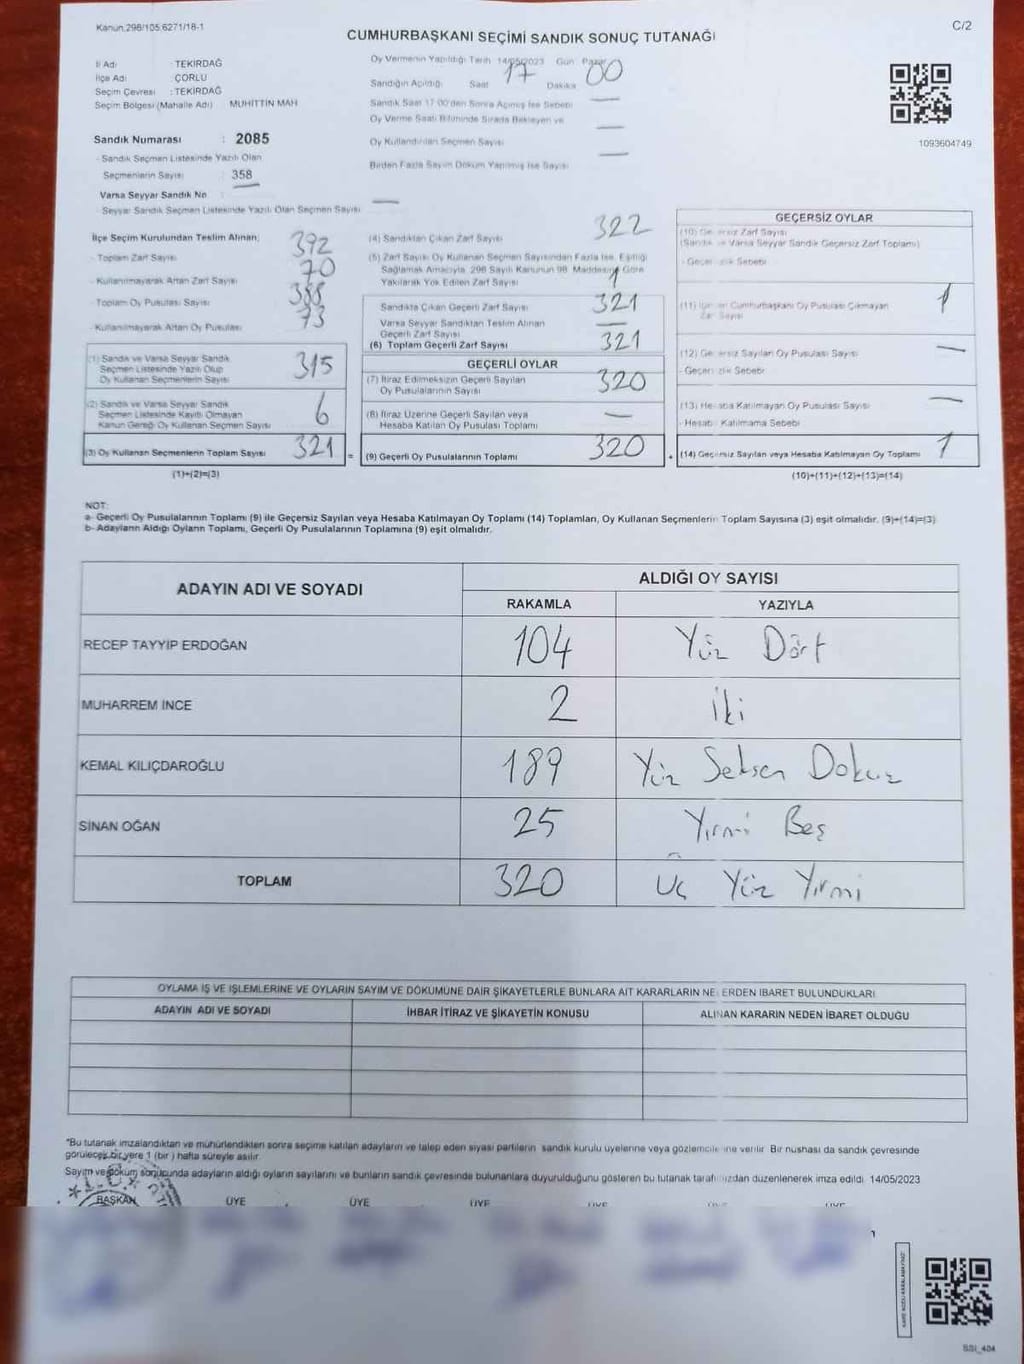 Kanun.298/105.6271/18-1
C/2
CUMHURBAŞKANI SEÇİMİ SANDIK SONUÇ TUTANAĞI
İl Adı : TEKİRDAĞ
İlçe Adı : ÇORLU
Seçim Çevresi : TEKİRDAĞ
Seçim Bölgesi (Mahalle Adı) MUHİTTİN MAH
Sandık Numarası : 2085
- Sandık Seçmen Listesinde Yazılı Olan
Seçmenlerin Sayısı 358
Varsa Seyyar Sandık No
- Seyyar Sandık Seçmen Listesinde Yazılı Olan Seçmen Sayısı —
Oy Vermenin Yapıldığı Tarih 14/05/2023 Gün Pazar
Sandığın Açıldığı Saat 17 Dakika 00
Sandık Saat 17.00'den Sonra Açılmış İse Sebebi —
Oy Verme Saati Bitiminde Sırada Bekleyen ve
Oy Kullandırılan Seçmen Sayısı —
Birden Fazla Sayım Döküm Yapılmış İse Sayısı —
1093604749
İlçe Seçim Kurulundan Teslim Alınan;
- Toplam Zarf Sayısı 392
- Kullanılmayarak Artan Zarf Sayısı 70
- Toplam Oy Pusulası Sayısı 388
- Kullanılmayarak Artan Oy Pusulası 73
(1) Sandık ve Varsa Seyyar Sandık
Seçmen Listesinde Yazılı Olup
Oy Kullanan Seçmenlerin Sayısı 315
(2) Sandık ve Varsa Seyyar Sandık
Seçmen Listesinde Kayıtlı Olmayan
Kanun Gereği Oy Kullanan Seçmen Sayısı 6
(3) Oy Kullanan Seçmenlerin Toplam Sayısı 321 =
(1)+(2)=(3)
(4) Sandıktan Çıkan Zarf Sayısı 322
(5) Zarf Sayısı Oy Kullanan Seçmen Sayısından Fazla İse, Eşitliği
Sağlamak Amacıyla 298 Sayılı Kanunun 98. Maddesine Göre
Yakılarak Yok Edilen Zarf Sayısı 1
Sandıkta Çıkan Geçerli Zarf Sayısı 321
Varsa Seyyar Sandıktan Teslim Alınan
Geçerli Zarf Sayısı —
(6) Toplam Geçerli Zarf Sayısı 321
GEÇERLİ OYLAR
(7) İtiraz Edilmeksizin Geçerli Sayılan
Oy Pusulalarının Sayısı 320
(8) İtiraz Üzerine Geçerli Sayılan veya
Hesaba Katılan Oy Pusulası Toplamı —
(9) Geçerli Oy Pusulalarının Toplamı 320 +
GEÇERSİZ OYLAR
(10) Zarf Sayısı
Varsa Seyyar Sandık Geçersiz Zarf Toplamı)
Sebebi
(11) Cumhurbaşkanı Oy Pusulası Çıkmayan
Zarf Sayısı 1
(12) Geçersiz Sayılan Oy Pusulası Sayısı —
- Sebebi
(13) Hesaba Katılmayan Oy Pusulası Sayısı —
- Hesaba Katılmama Sebebi
(14) Geçersiz Sayılan veya Hesaba Katılmayan Oy Toplamı 1
(10)+(11)+(12)+(13)=(14)
NOT:
a- Geçerli Oy Pusulalarının Toplamı (9) ile Geçersiz Sayılan veya Hesaba Katılmayan Oy Toplamı (14) Toplamları, Oy Kullanan Seçmenlerin Toplam Sayısına (3) eşit olmalıdır. (9)+(14)=(3)
b- Adayların Aldığı Oyların Toplamı, Geçerli Oy Pusulalarının Toplamına (9) eşit olmalıdır.
ADAYIN ADI VE SOYADI
ALDIĞI OY SAYISI
RAKAMLA YAZIYLA
RECEP TAYYİP ERDOĞAN 104 Yüz Dört
MUHARREM İNCE 2 İki
KEMAL KILIÇDAROĞLU 189 Yüz Seksen Dokuz
SİNAN OĞAN 25 Yirmi Beş
TOPLAM 320 Üç Yüz Yirmi
OYLAMA İŞ VE İŞLEMLERİNE VE OYLARIN SAYIM VE DÖKÜMÜNE DAİR ŞİKAYETLERLE BUNLARA AİT KARARLARIN NELERDEN İBARET BULUNDUKLARI
ADAYIN ADI VE SOYADI
İHBAR İTİRAZ VE ŞİKAYETİN KONUSU
ALINAN KARARIN NEDEN İBARET OLDUĞU
"Bu tutanak imzalandıktan ve mühürlendikten sonra seçime katılan adayların ve talep eden siyasi partilerin sandık kurulu üyelerine veya gözlemcilerine verilir. Bir nüshası da sandık çevresinde
görülecek bir yere 1 (bir) hafta süreyle asılır.
Sayım ve döküm sonucunda adayların aldığı oyların sayılarını ve bunların sandık çevresinde bulunanlara duyurulduğunu gösteren bu tutanak tarafımızdan düzenlenerek imza edildi. 14/05/2023
BAŞKAN ÜYE ÜYE ÜYE ÜYE ÜYE
SSI_404